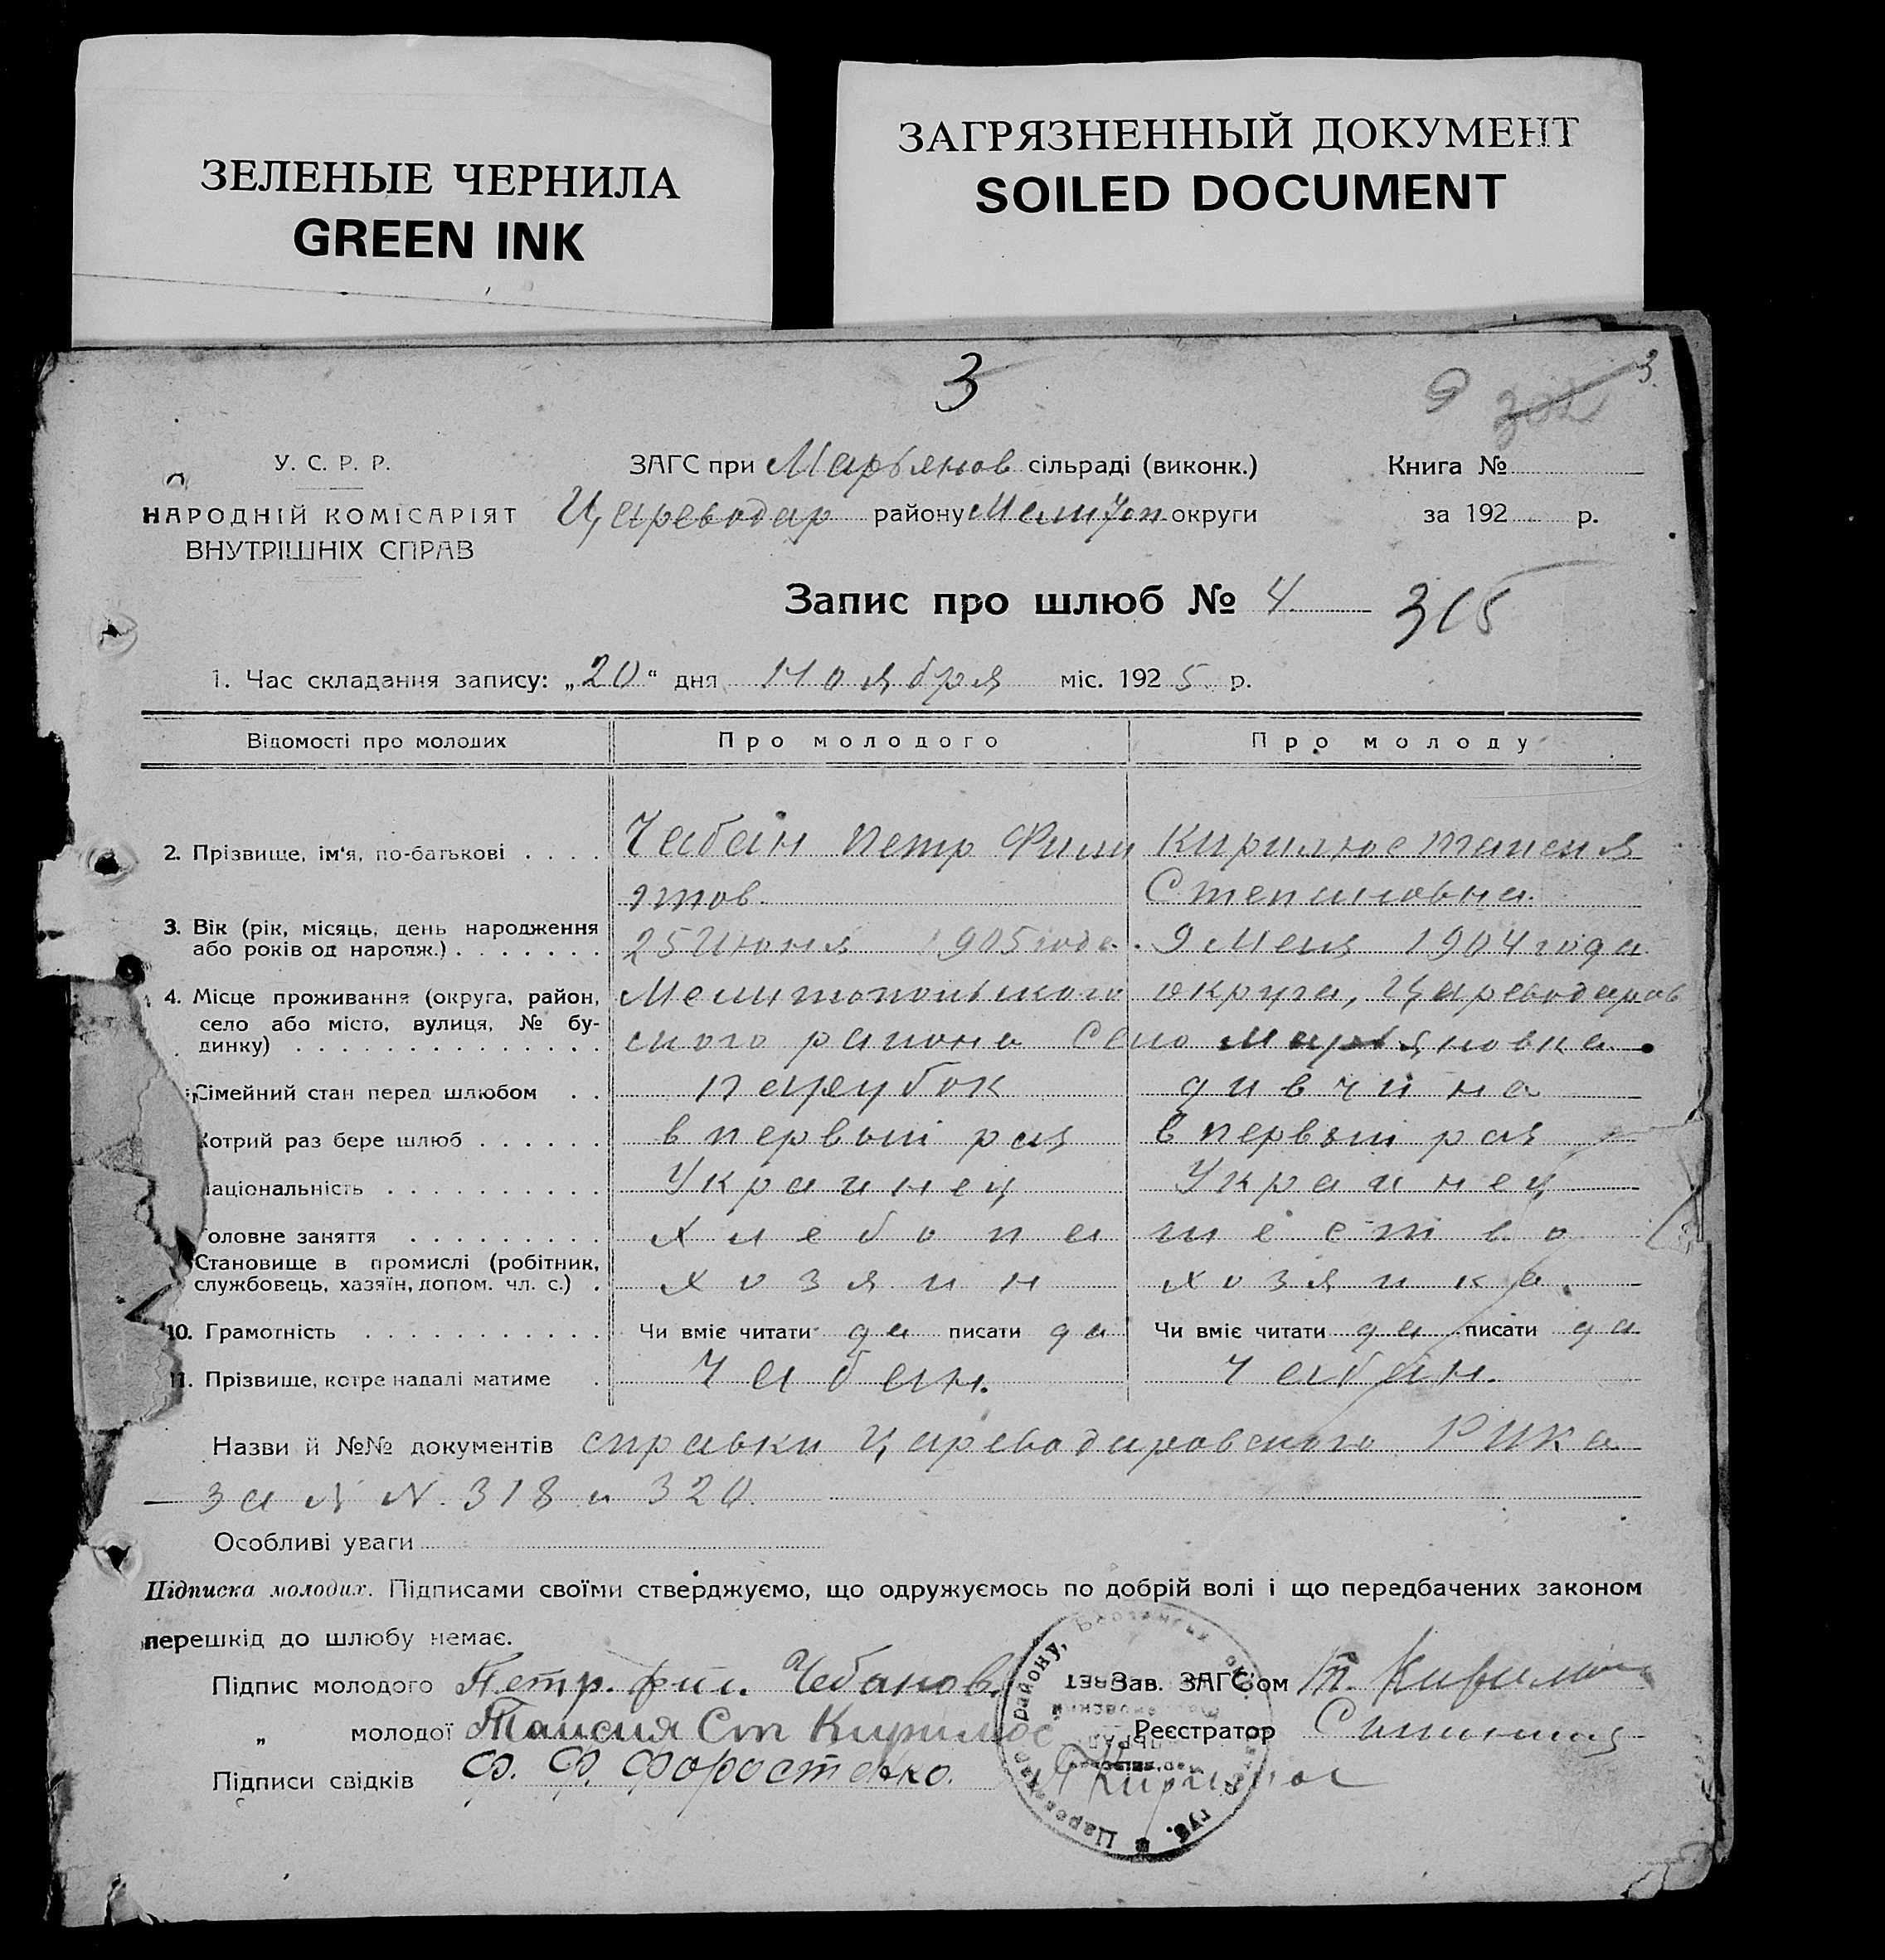 ЗЕЛЕНЫЕ ЧЕРНИЛА
GREEN INK
ЗАГРЯЗНЕННЫЙ ДОКУМЕНТ
SOILED DOCUMENT
3
9 302 3.
У. С. Р. Р.
НАРОДНІЙ КОМІСАРІЯТ
ВНУТРІШНІХ СПРАВ
ЗАГС при Марьянов сільраді (виконк.)
Цареводар району Мелитоп округи
Книга №
за 192 р.
Запис про шлюб № 4
315
1. Час складання запису: „20“ дня ноября міс. 1925 р.
Відомості про молодих Про молодого Про молоду
2. Прізвище, ім'я, по-батькові . . . . Чабан Петр Фили Кирилюс Таисия
ппов. Степановна.
3. Вік (рік, місяць, день народження
або років од народж.) . . . . . . . 25 Июня 1905 года. 9 Мая 1904 года
4. Місце проживання (округа, район, Мелитопольского округа, Цареводаров
село або місто, вулиця, № бу-
динку) . . . . . . . . . . . . . . ского района Село Марьяновка.
Сімейний стан перед шлюбом . . парубок дивчина
Котрий раз бере шлюб . . . . . . в первый раз в первый раз
Національність . . . . . . . . . . Украинец Украинец
Головне заняття . . . . . . . . . хлебопашество
Становище в промислі (робітник,
службовець, хазяїн, допом. чл. с.) . хозяин хозяика.
10. Грамотність . . . . . . . . . . . Чи вміє читати да писати да Чи вміє читати да писати да
11. Прізвище, котре надалі матиме . Чабан. Чабан.
Назви й №№ документів справки Цареводаровского РИКа
за № N. 318 и 320.
Особливі уваги
Підписка молодих. Підписами своїми стверджуємо, що одружуємось по добрій волі і що передбачених законом
перешкід до шлюбу немає.
Підпис молодого Петр. фил. Чебанов. Зав. ЗАГС'ом П. Кирилюс
„ молодої Таисия Ст Кирилюс Реєстратор
Підписи свідків Ф. Ф. Форостенко. Кирилюс
району,
губ.